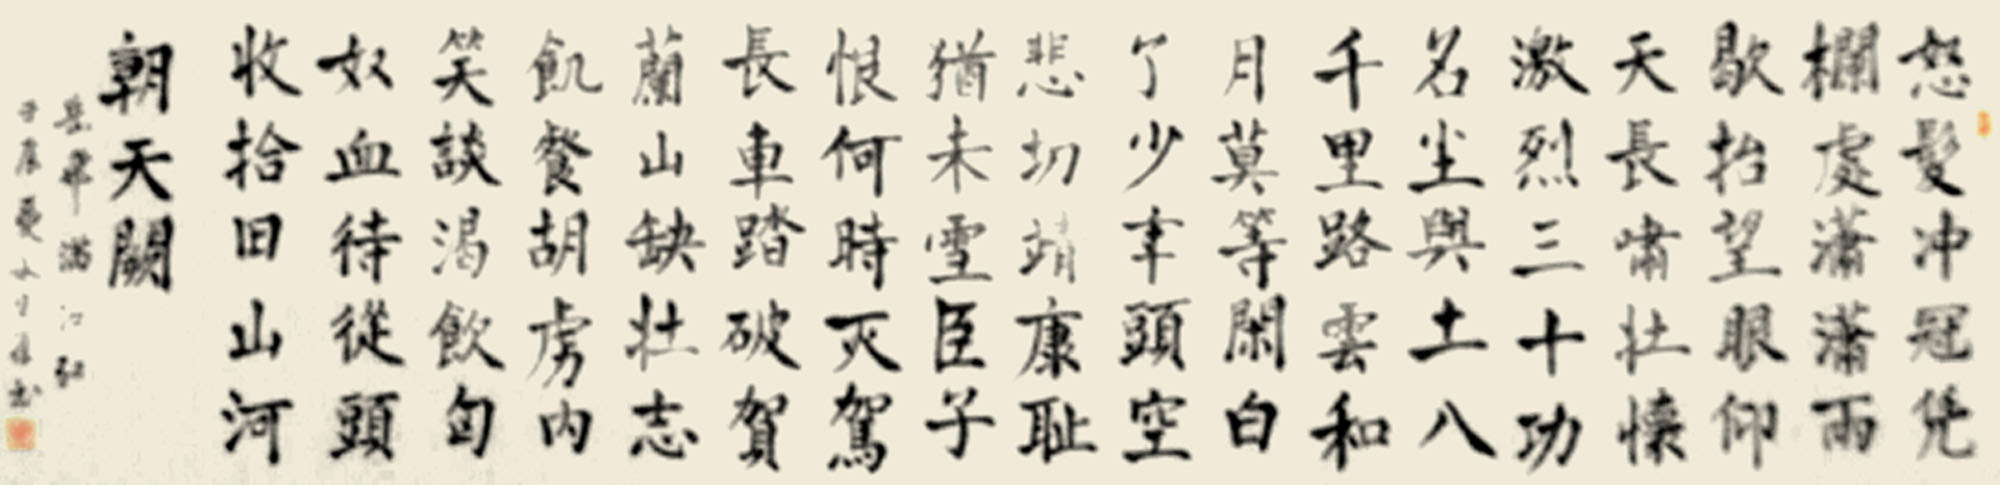 怒髮冲冠凭
欄處瀟瀟雨
歇抬望眼仰
天長嘯壯懐
激烈三十功
名尘與土八
千里路雲和
月莫等閑白
了少年頭空
悲切靖康耻
猶未雪臣子
恨何時灭駕
長車踏破賀
蘭山缺壯志
飢餐胡虏肉
笑談渴飲匈
奴血待從頭
收拾旧山河
朝天闕
岳飛满江红